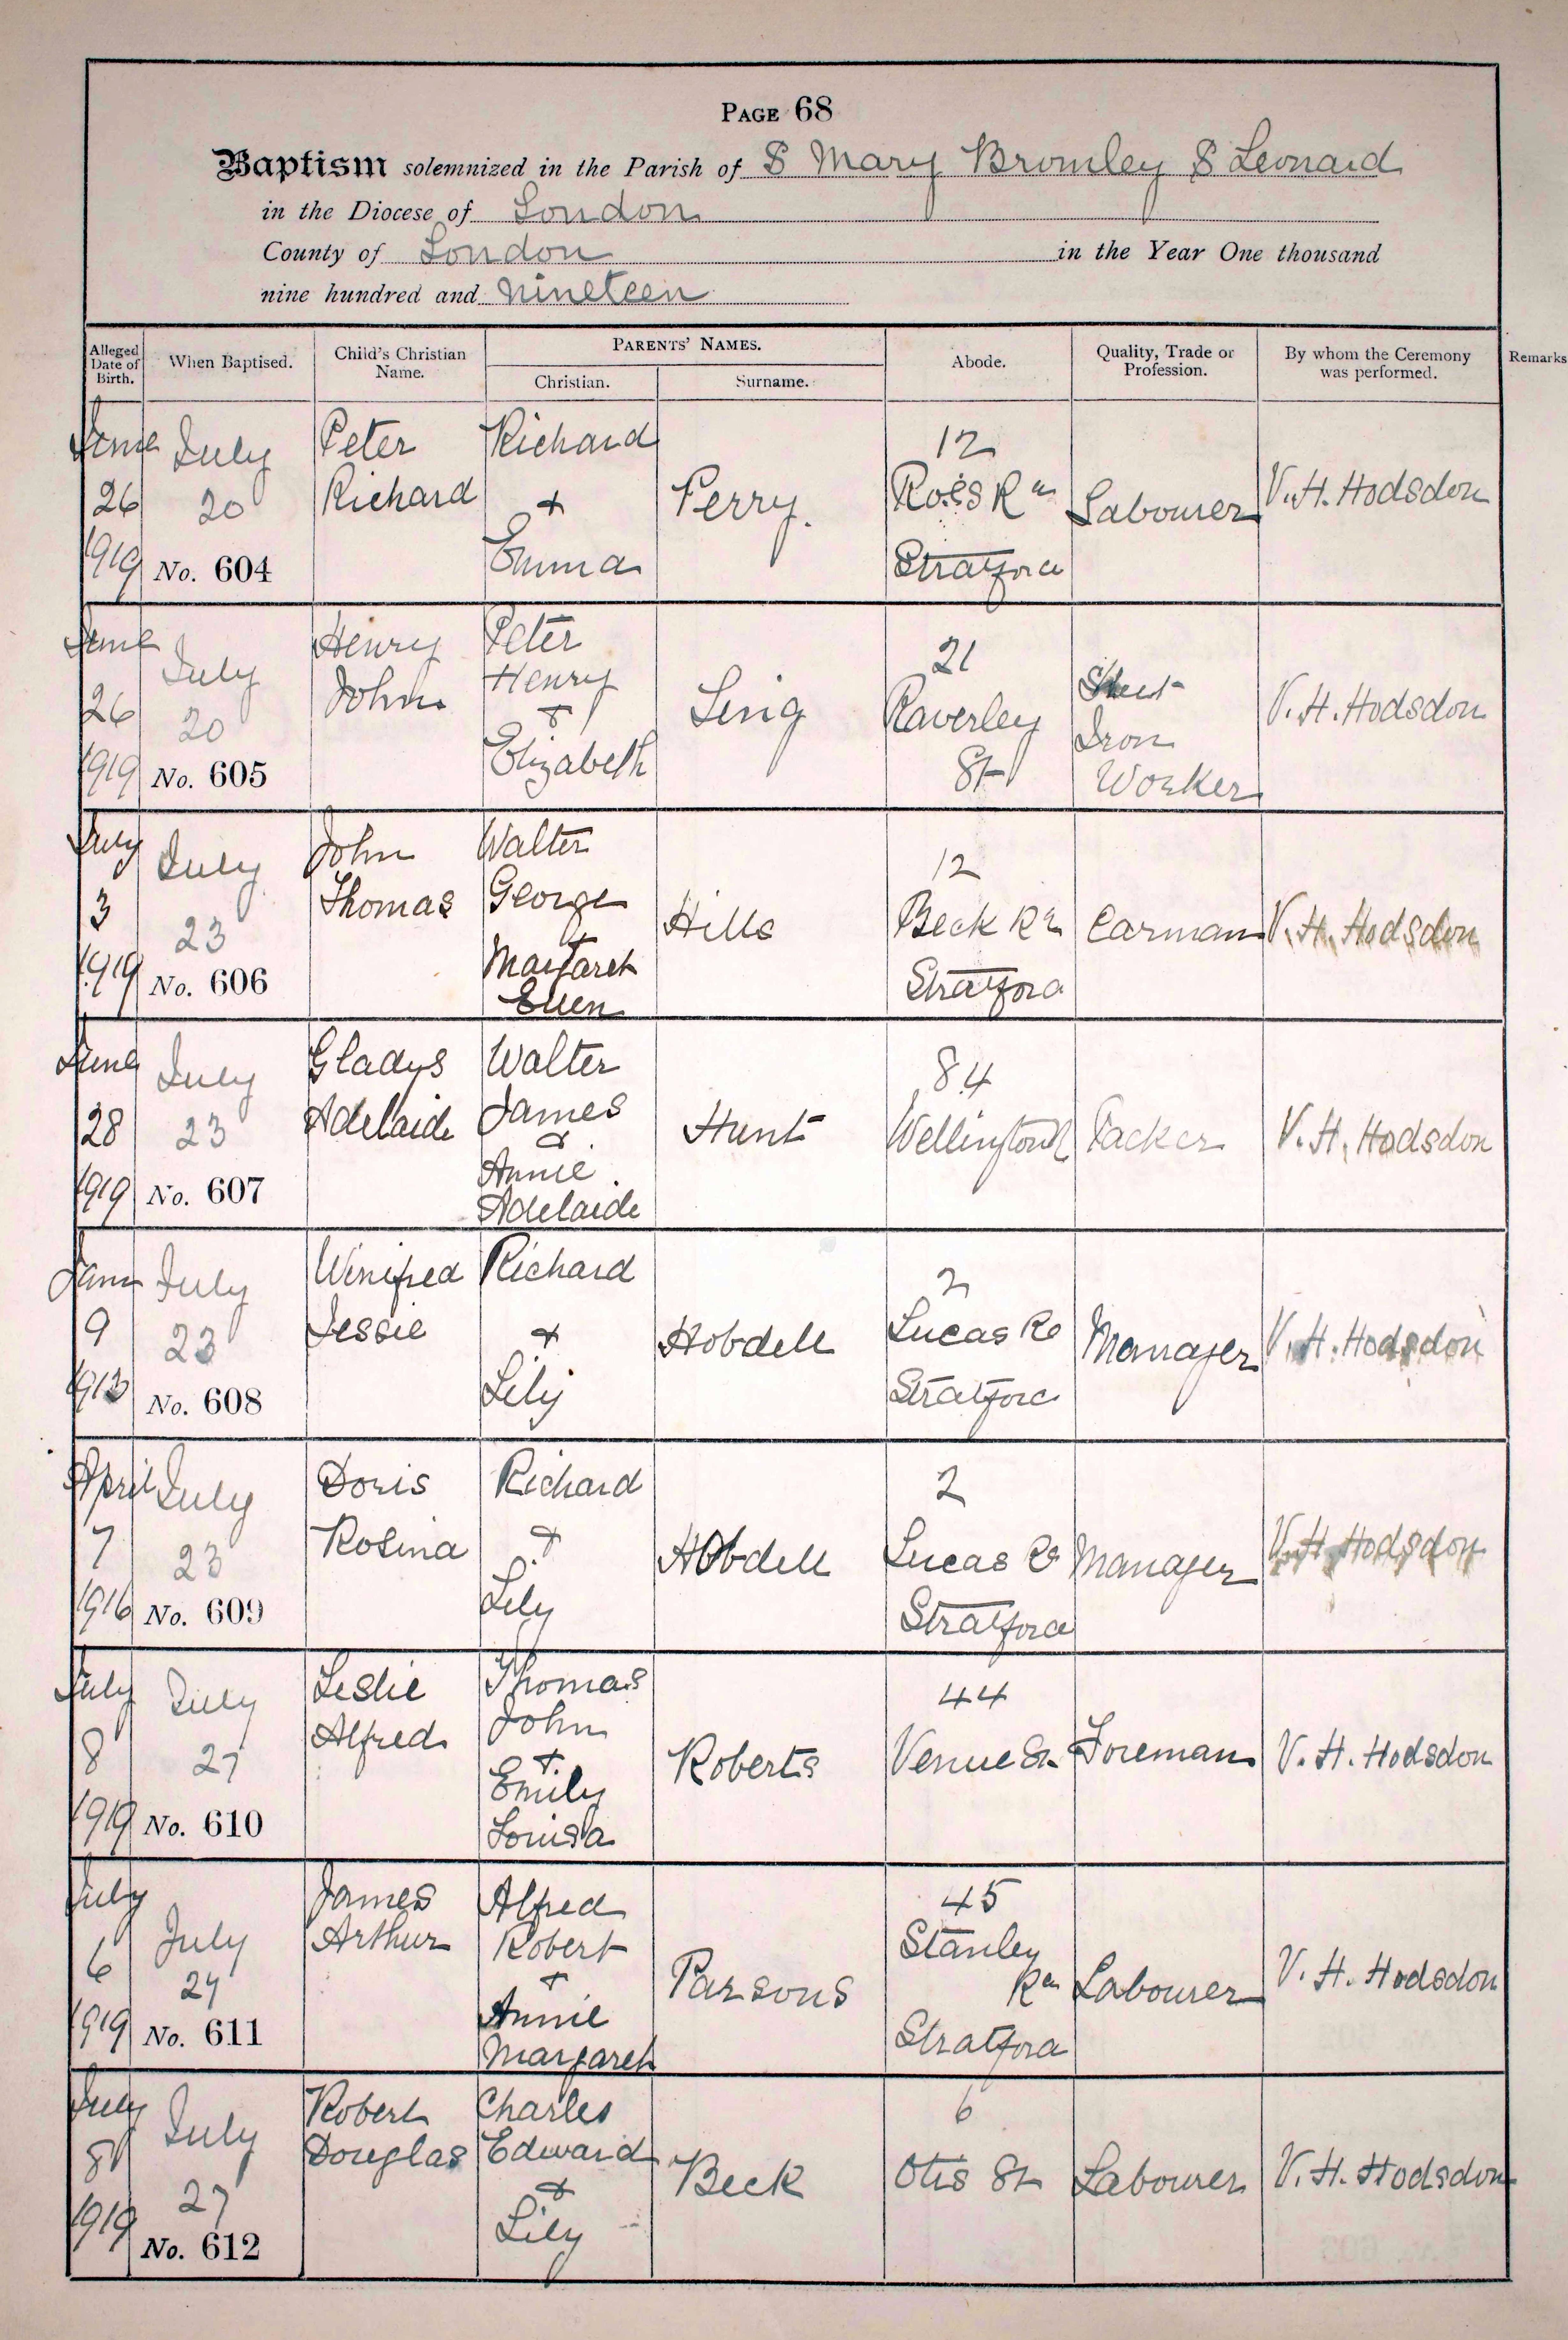 PAGE 68
Baptism solemnized in the Parish of S Mary Bromley S Leonard
in the Diocese of London
County of London in the Year One thousand
nine hundred and nineteen
Alleged Date of Birth. When Baptised. Child's Christian Name. PARENTS' NAMES. Christian. Surname. Abode. Quality, Trade or Profession. By whom the Ceremony was performed. Remarks
June
26
1919
July
20
No. 604
Peter
Richard
Richard
+
Emma
Perry.
12
Stratford
Labourer
V. H. Hodsdon
June
26
1919
July
20
No. 605
Henry
John
Peter
Henry
+
Elizabeth
Ling
21
Raverley
St
Sheet
Iron
Worker
V. H. Hodsdon
July
3
1919
July
23
No. 606
John
Thomas
Walter
George
Margaret
Ellen
Hills
12
Beck Rd
Stratford
Carman
V. H. Hodsdon
June
28
1919
July
23
No. 607
Gladys
Adelaide
Walter
James
&
Annie
Adelaide
Hunt
84
Wellington Rd
Packer
V. H. Hodsdon
Jany
9
1913
July
23
No. 608
Winifred
Jessie
Richard
+
Lily
Hobdell
2
Lucas Rd
Stratford
Manager
V. H. Hodsdon
April
7
1916
July
23
No. 609
Doris
Rosina
Richard
+
Lily
Hobdell
2
Lucas Rd
Stratford
Manager
V. H. Hodsdon
July
8
1919
July
27
No. 610
Leslie
Alfred
Thomas
John
+
Emily
Louisa
Roberts
44
Venue St
Foreman
V. H. Hodsdon
July
6
1919
July
27
No. 611
James
Arthur
Alfred
Robert
+
Annie
Margaret
Parsons
45
Stanley
Rd
Stratford
Labourer
V. H. Hodsdon
July
8
1919
July
27
No. 612
Robert
Douglas
Charles
Edward
&
Lily
Beck
6
Otis St
Labourer
V. H. Hodsdon